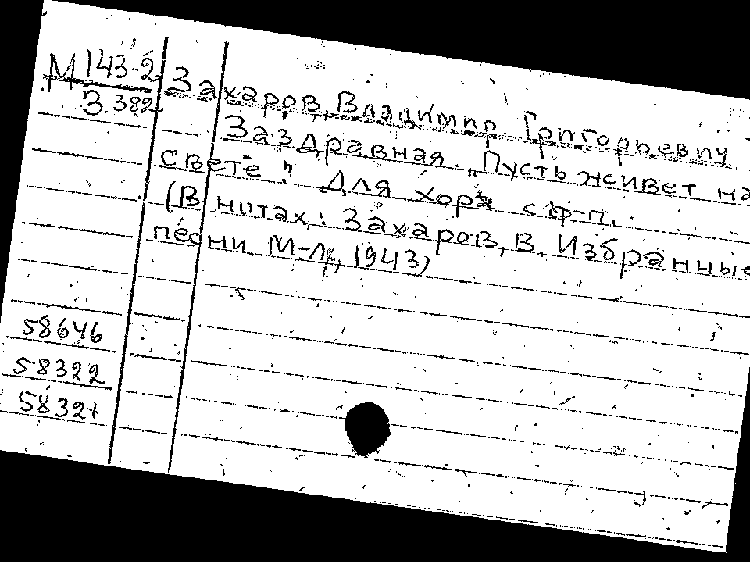 М 143-2
З 382
Захаров, Владимир Григорьевич
Заздравная "Пусть живет на
свете". Для хора с ф-п.
(В нотах: Захаров, В. Избранные
песни. М-Л, 1943)
58646
58322
58321